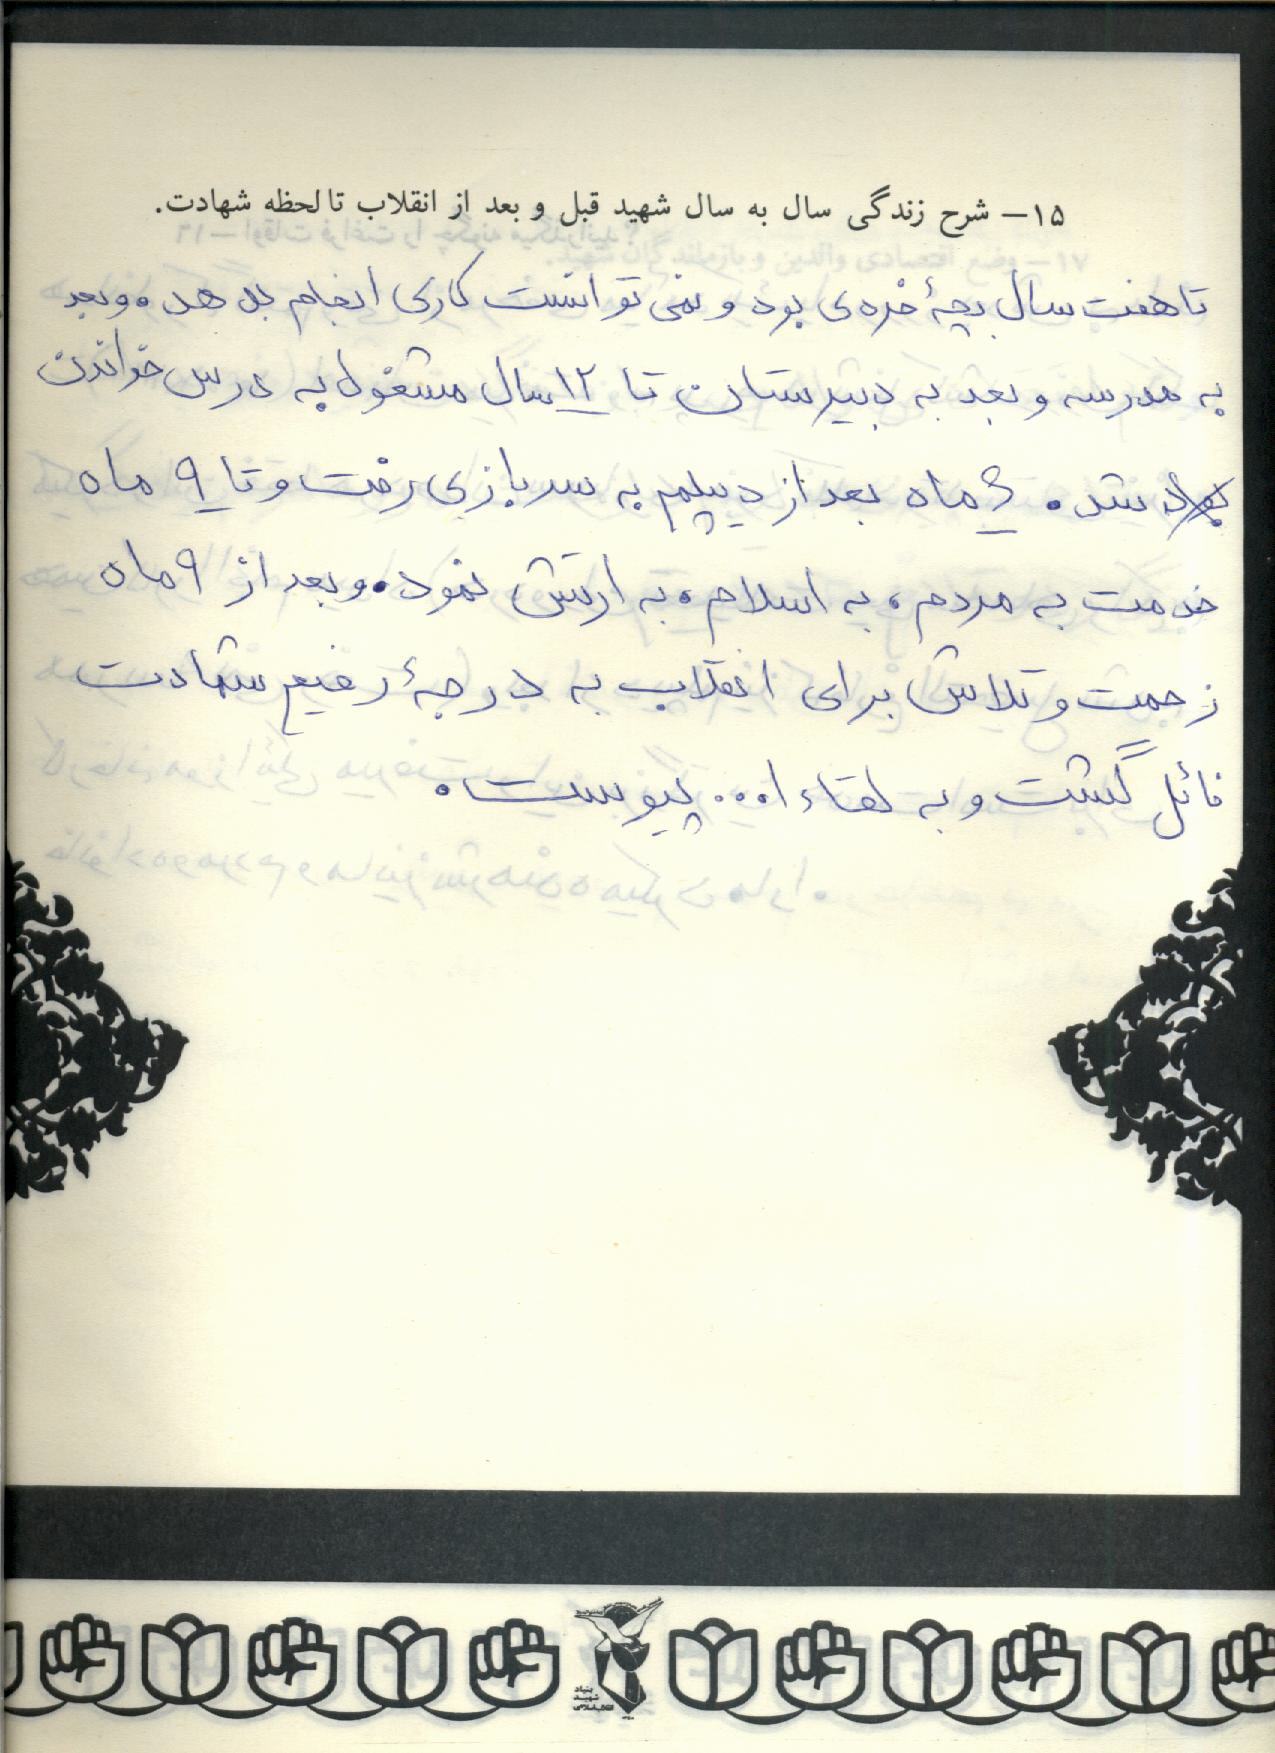 ۱۵ـ شرح زندگی سال به سال شهید قبل و بعد از انقلاب تا لحظه شهادت.
تا هفت سال بچهٔ خرده‌ی بود و نمی توانست کاری انجام بدهد. وبعد
به مدرسه و بعد به دبیرستان تا ۱۲ سال مشغول به درس خواندن
شد. ۶ ماه بعد از دیپلم به سربازی رفت و تا ۹ ماه
خدمت به مردم، به اسلام، به ارتش نمود. و بعد از ۹ ماه
زحمت و تلاش برای انقلاب به درجهٔ رفیع شهادت
نائل گشت و به لقاء ا... پیوست.
بنیاد
شهید
انقلاب اسلامی